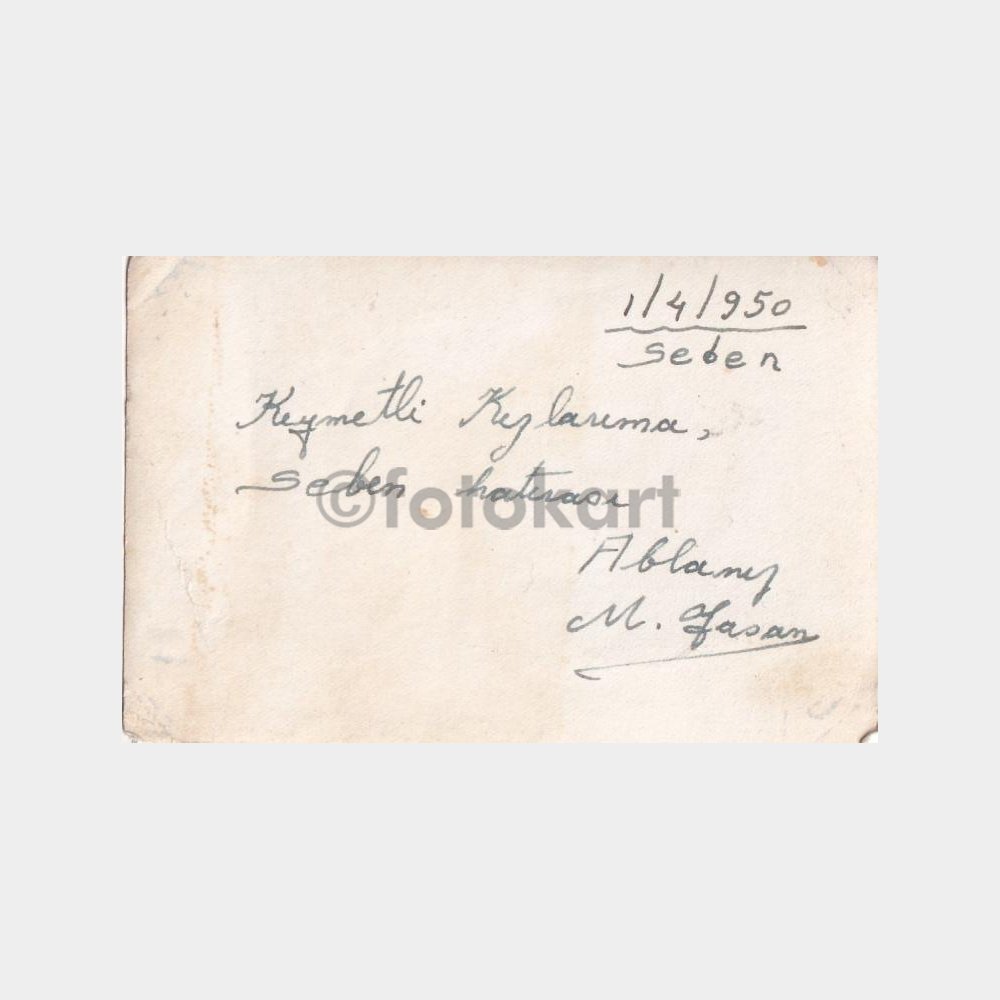 1/4/950
Seben
Kıymetli Kızlarıma,
Seben hatırası
©fotokart
Ablanız
M.